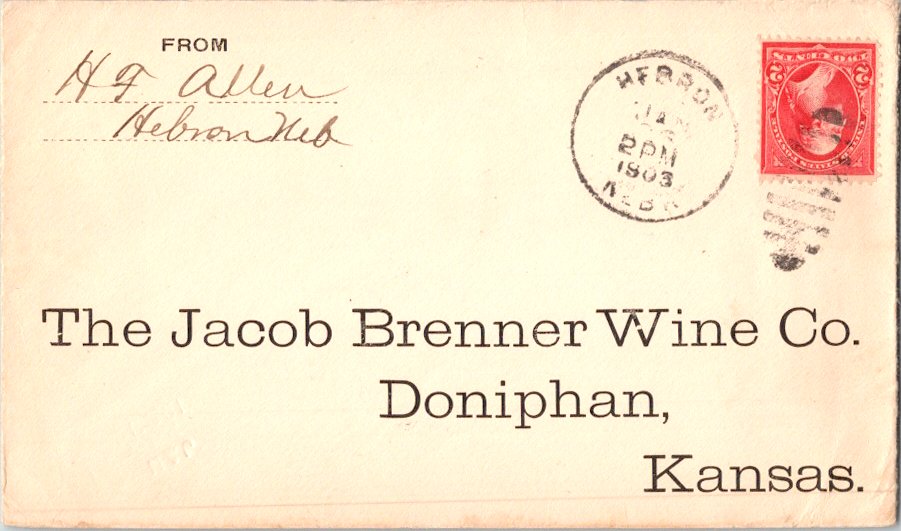 FROM
H F Allen
Hebron Neb
HEBRON
JAN
2 PM
1903
NEBR
2 2
The Jacob Brenner Wine Co.
Doniphan,
Kansas.